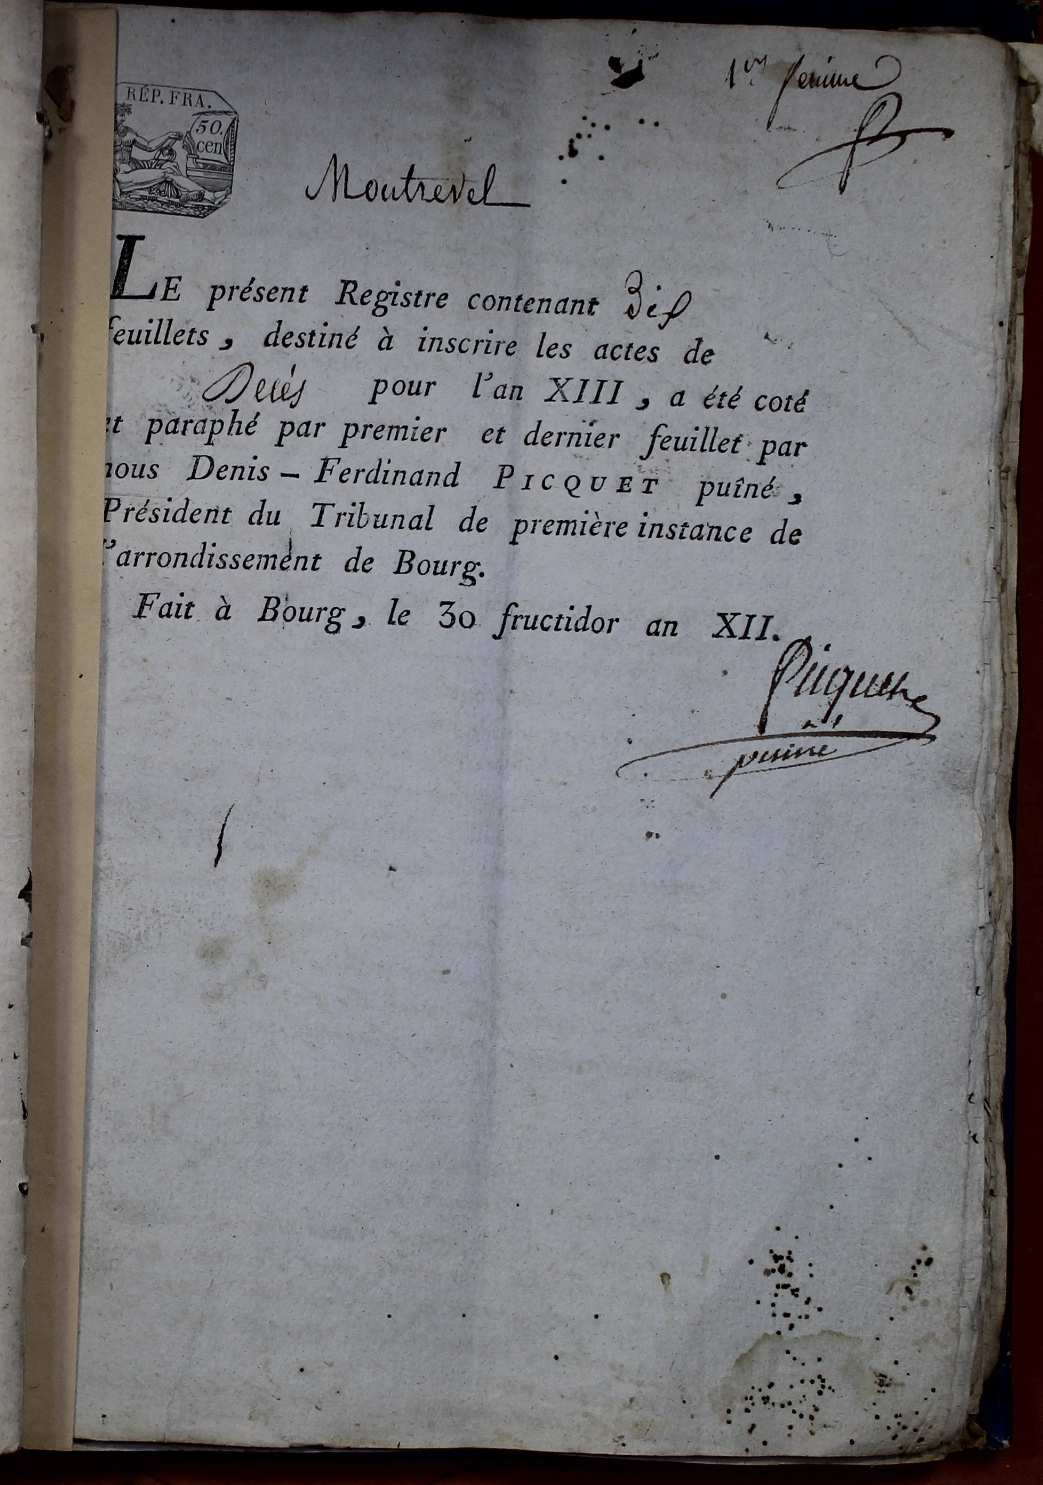 1er feuillet
RÉP. FRA.
50.
cen
Montrevel
LE présent Registre contenant Dix
feuillets, destiné à inscrire les actes de
Decès pour l'an XIII, a été coté
et paraphé par premier et dernier feuillet par
nous Denis-Ferdinand PICQUET puîné,
Président du Tribunal de première instance de
l'arrondissement de Bourg.
Fait à Bourg, le 30 fructidor an XII.
Picquet
puîné